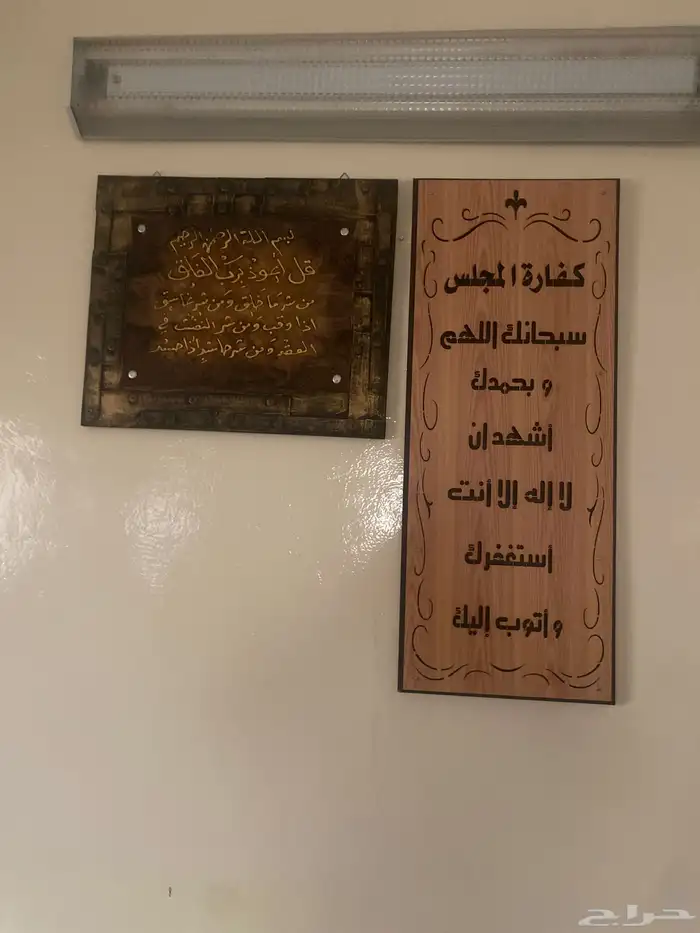 بسم الله الرحمن الرحيم
قل أعوذ برب الفلق
من شر ما خلق ومن شر غاسق
اذا وقب ومن شر النفثت في
العقد ومن شر حاسد إذا حسد
كفارة المجلس
سبحانك اللهم
و بحمدك
أشهد ان
لا إله إلا أنت
أستغفرك
و أتوب إليك
حراج